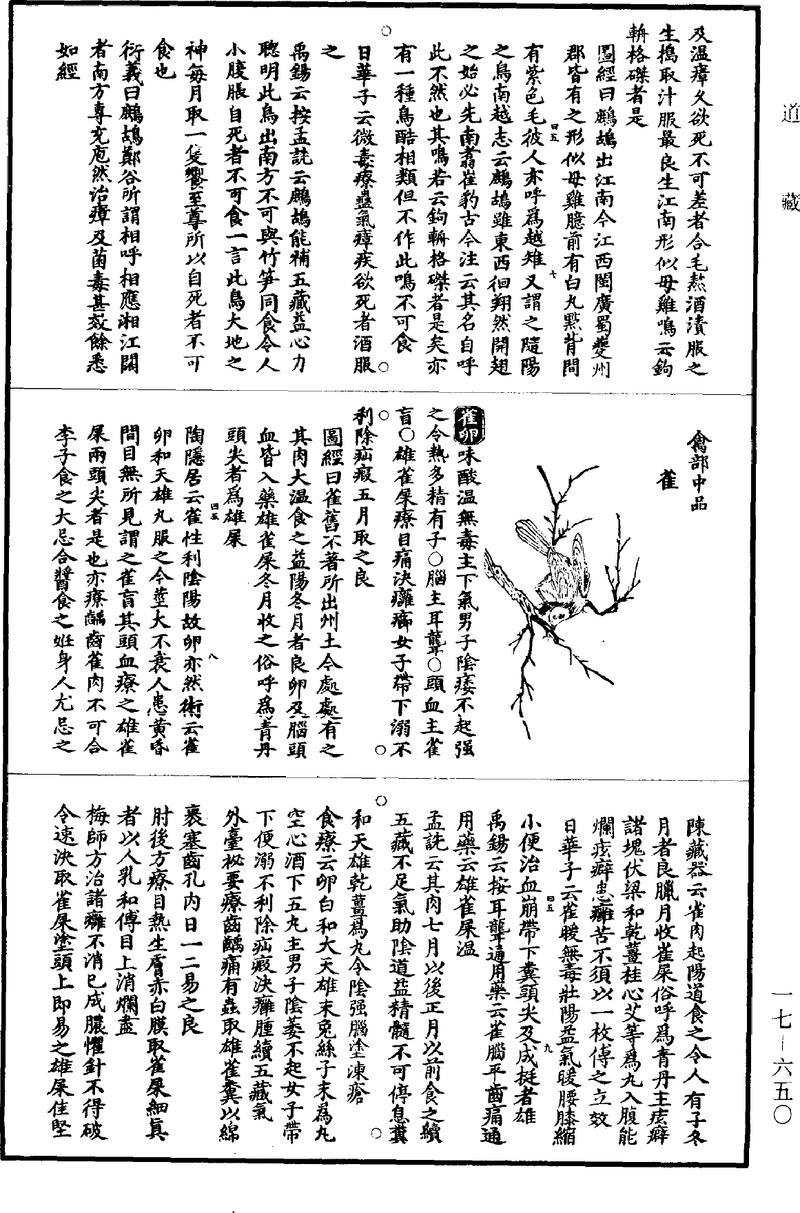 道藏
及溫瘴久欲死不可差者合毛熬酒漬服之
生搗取汁服最良生江南形似母雞鳴云鉤
輈格磔者是
圖經曰鷓鴣出江南今江西閩廣蜀夔州
郡皆有之形似母雞臆前有白丸點背間
有紫色毛彼人亦呼為越雉又謂之隨陽
之鳥南越志云鷓鴣雖東西徊翔然開翅
之始必先南翥崔豹古今注云其名自呼
此不然也其鳴若云鉤輈格磔者是矣亦
有一種鳥酷相類但不作此鳴不可食
日華子云微毒療蠱氣瘴疾欲死者酒服
之
禹錫云按孟詵云鷓鴣能補五藏益心力
聰明此鳥出南方不可與竹笋同食令人
小腹脹自死者不可食一言此鳥天地之
神每月取一隻饗至尊所以自死者不可
食也
衍義曰鷓鴣鄭谷所謂相呼相應湘江闊
者南方專充庖然治瘴及菌毒甚效餘悉
如經
四五
七
禽部中品
雀
雀卵味酸溫無毒主下氣男子陰痿不起强
之令熱多精有子○腦主耳聾○頭血主雀
盲○雄雀屎療目痛決癰癤女子帶下溺不
利除疝瘕五月取之良
圖經曰雀舊不著所出州土今處處有之
其肉大溫食之益陽冬月者良卵及腦頭
血皆入藥雄雀屎冬月收之俗呼為青丹
頭尖者為雄屎
陶隱居云雀性利陰陽故卵亦然術云雀
卵和天雄丸服之令莖大不衰人患黃昏
間目無所見謂之雀盲其頭血療之雄雀
屎兩頭尖者是也亦療齲齒雀肉不可合
李子食之大忌合醬食之妊身人尤忌之
四五
八
陳藏器云雀肉起陽道食之令人有子冬
月者良臘月收雀屎俗呼為青丹主痃癖
諸塊伏梁和乾薑桂心艾等為丸入腹能
爛痃癖患癰苦不須以一枚傅之立效
日華子云雀暖無毒壯陽益氣暖腰膝縮
小便治血崩帶下糞頭尖及成梃者雄
禹錫云按耳聾通用藥云雀腦平齒痛通
用藥云雄雀屎溫
孟詵云其肉七月以後正月以前食之續
五藏不足氣助陰道益精髓不可停息糞
和天雄乾薑為丸令陰强腦塗凍瘡
食療云卵白和大天雄末菟絲子末為丸
空心酒下五丸主男子陰萎不起女子帶
下便溺不利除疝瘕決癰腫續五藏氣
外臺祕要療齒齲痛有蟲取雄雀糞以綿
裹塞齒孔內日一二易之良
肘後方療目熱生膚赤白膜取雀屎細直
者以人乳和傅目上消爛盡
梅師方治諸癰不消已成膿懼針不得破
令速決取雀屎塗頭上即易之雄屎佳堅
四五
九
一七—六五〇